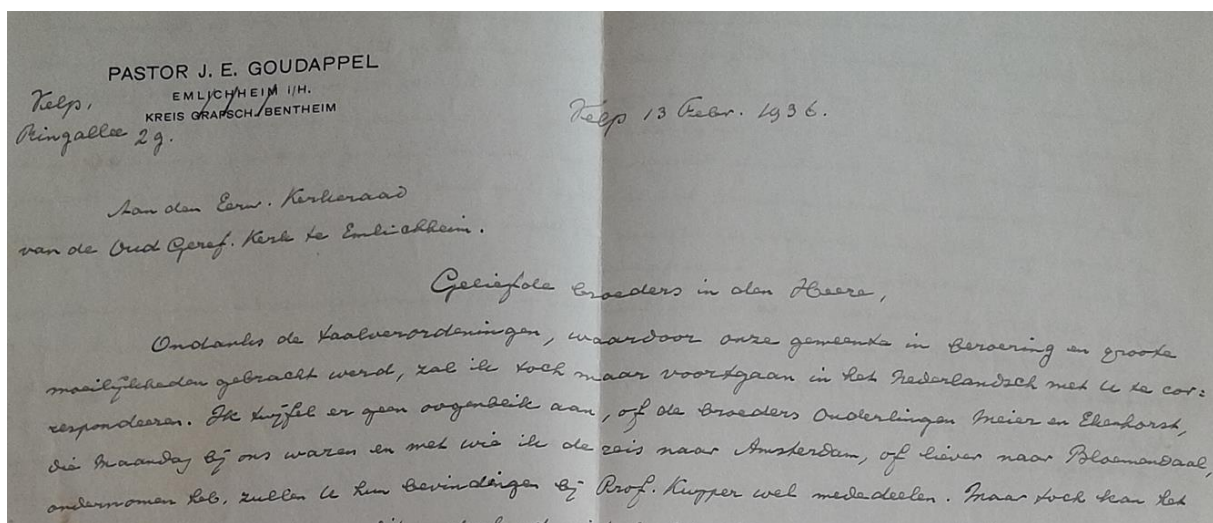 PASTOR J. E. GOUDAPPEL
EMLICHHEIM i/H.
KREIS GRAFSCH. BENTHEIM
Velp,
Ringallee 29.
Velp 13 Febr. 1936.
Aan den Eerw. Kerkeraad
van de Oud Geref. Kerk te Emlichheim.
Geliefde broeders in den Heere,
Ondanks de taalverordeningen, waardoor onze gemeente in beroering en groote
moeilijkheden gebracht werd, zal ik toch maar voortgaan in het Nederlandsch met U te cor=
respondeeren. Ik twijfel er geen oogenblik aan, of de broeders Ouderlingen Meier en Ekenhorst,
die Maandag bij ons waren en met wie ik de reis naar Amsterdam, of liever naar Bloemendaal,
ondernomen heb, zullen U hun bevindingen bij Prof. Kuyper wel mededeelen. Maar toch kan het